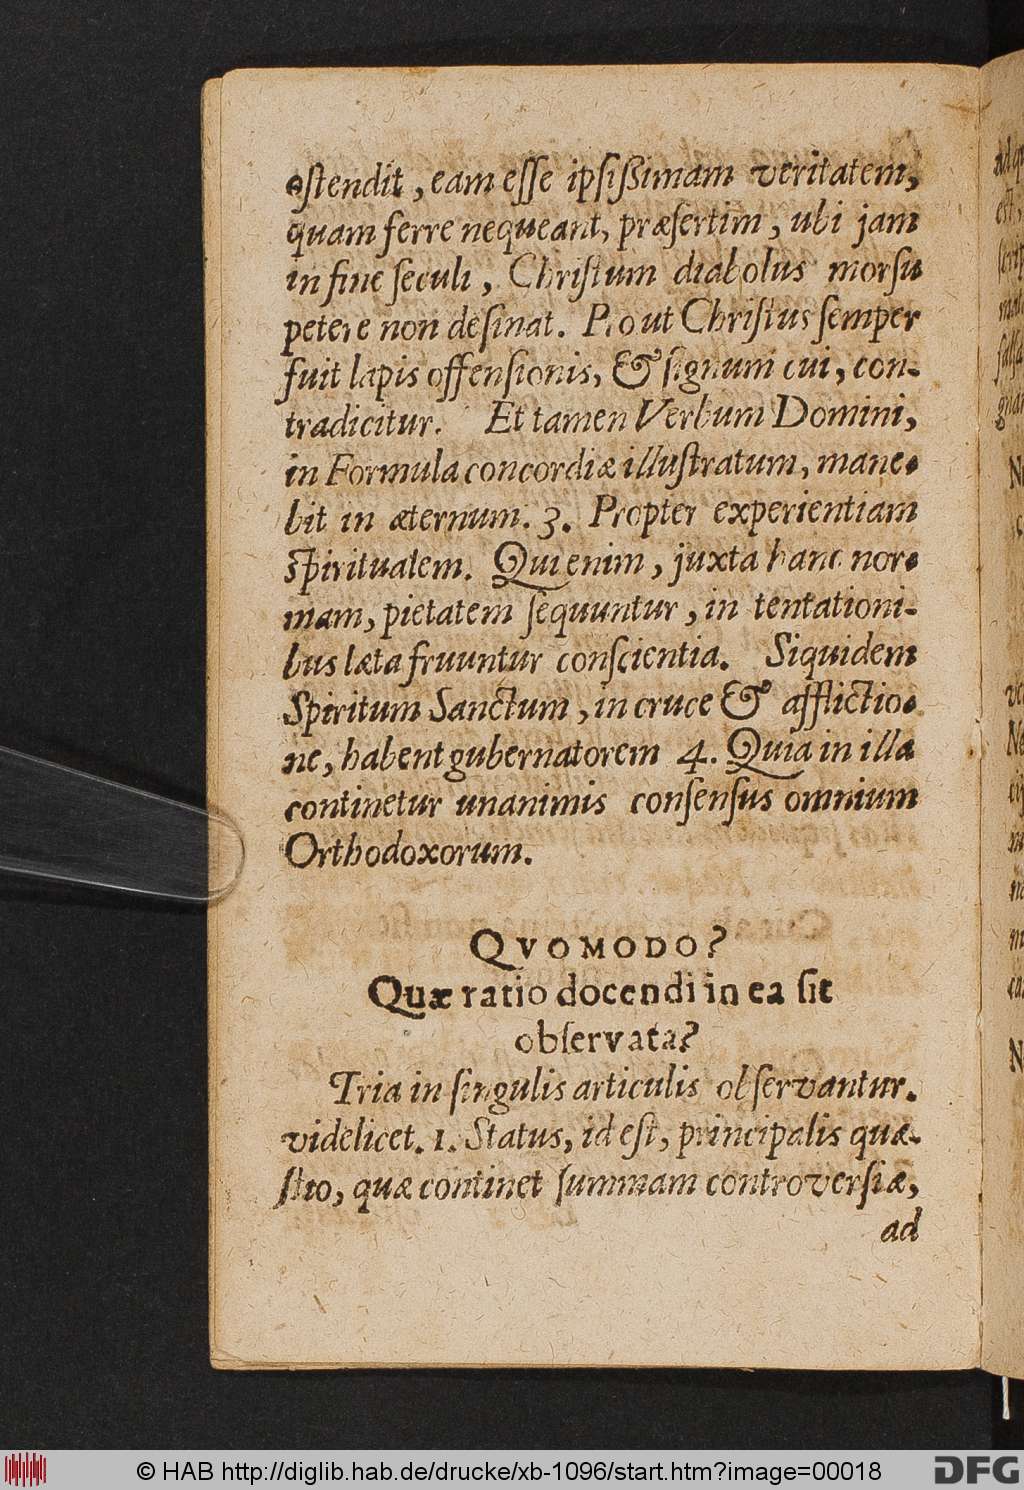 ostendit, eam esse ipsißimam veritatem,
quam ferre nequeant, præsertim, ubi jam
in fine seculi, Christum diabolus morsu
petere non desinat. Prout Christus semper
fuit lapis offensionis, & signum cui, con-
tradicitur. Et tamen Verbum Domini,
in Formula concordiæ illustratum, mane-
bit in æternum. 3. Propter experientiam
spiritualem. Qui enim, juxta hanc nor-
mam, pietatem sequuntur, in tentationi-
bus læta fruuntur conscientia. Siquidem
Spiritum Sanctum, in cruce & afflictio-
ne, habent gubernatorem 4. Quia in illa
continetur unanimis consensus omnium
Orthodoxorum.
QVOMODO?
Quæ ratio docendi in ea sit
observata?
Tria in singulis articulis observantur.
videlicet. 1. Status, id est, principalis quæ-
stio, quæ continet summam controversiæ,
ad
© HAB http://diglib.hab.de/drucke/xb-1096/start.htm?image=00018
DFG